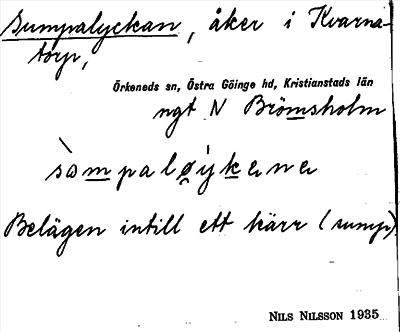 Sumpalyckan, åker i Kvarna-
torp,
Örkeneds sn, Östra Göinge hd, Kristianstads län
ngt N Brömsholm
sàmpaløýkene
Belägen intill ett kärr (sump).
NILS NILSSON 1935